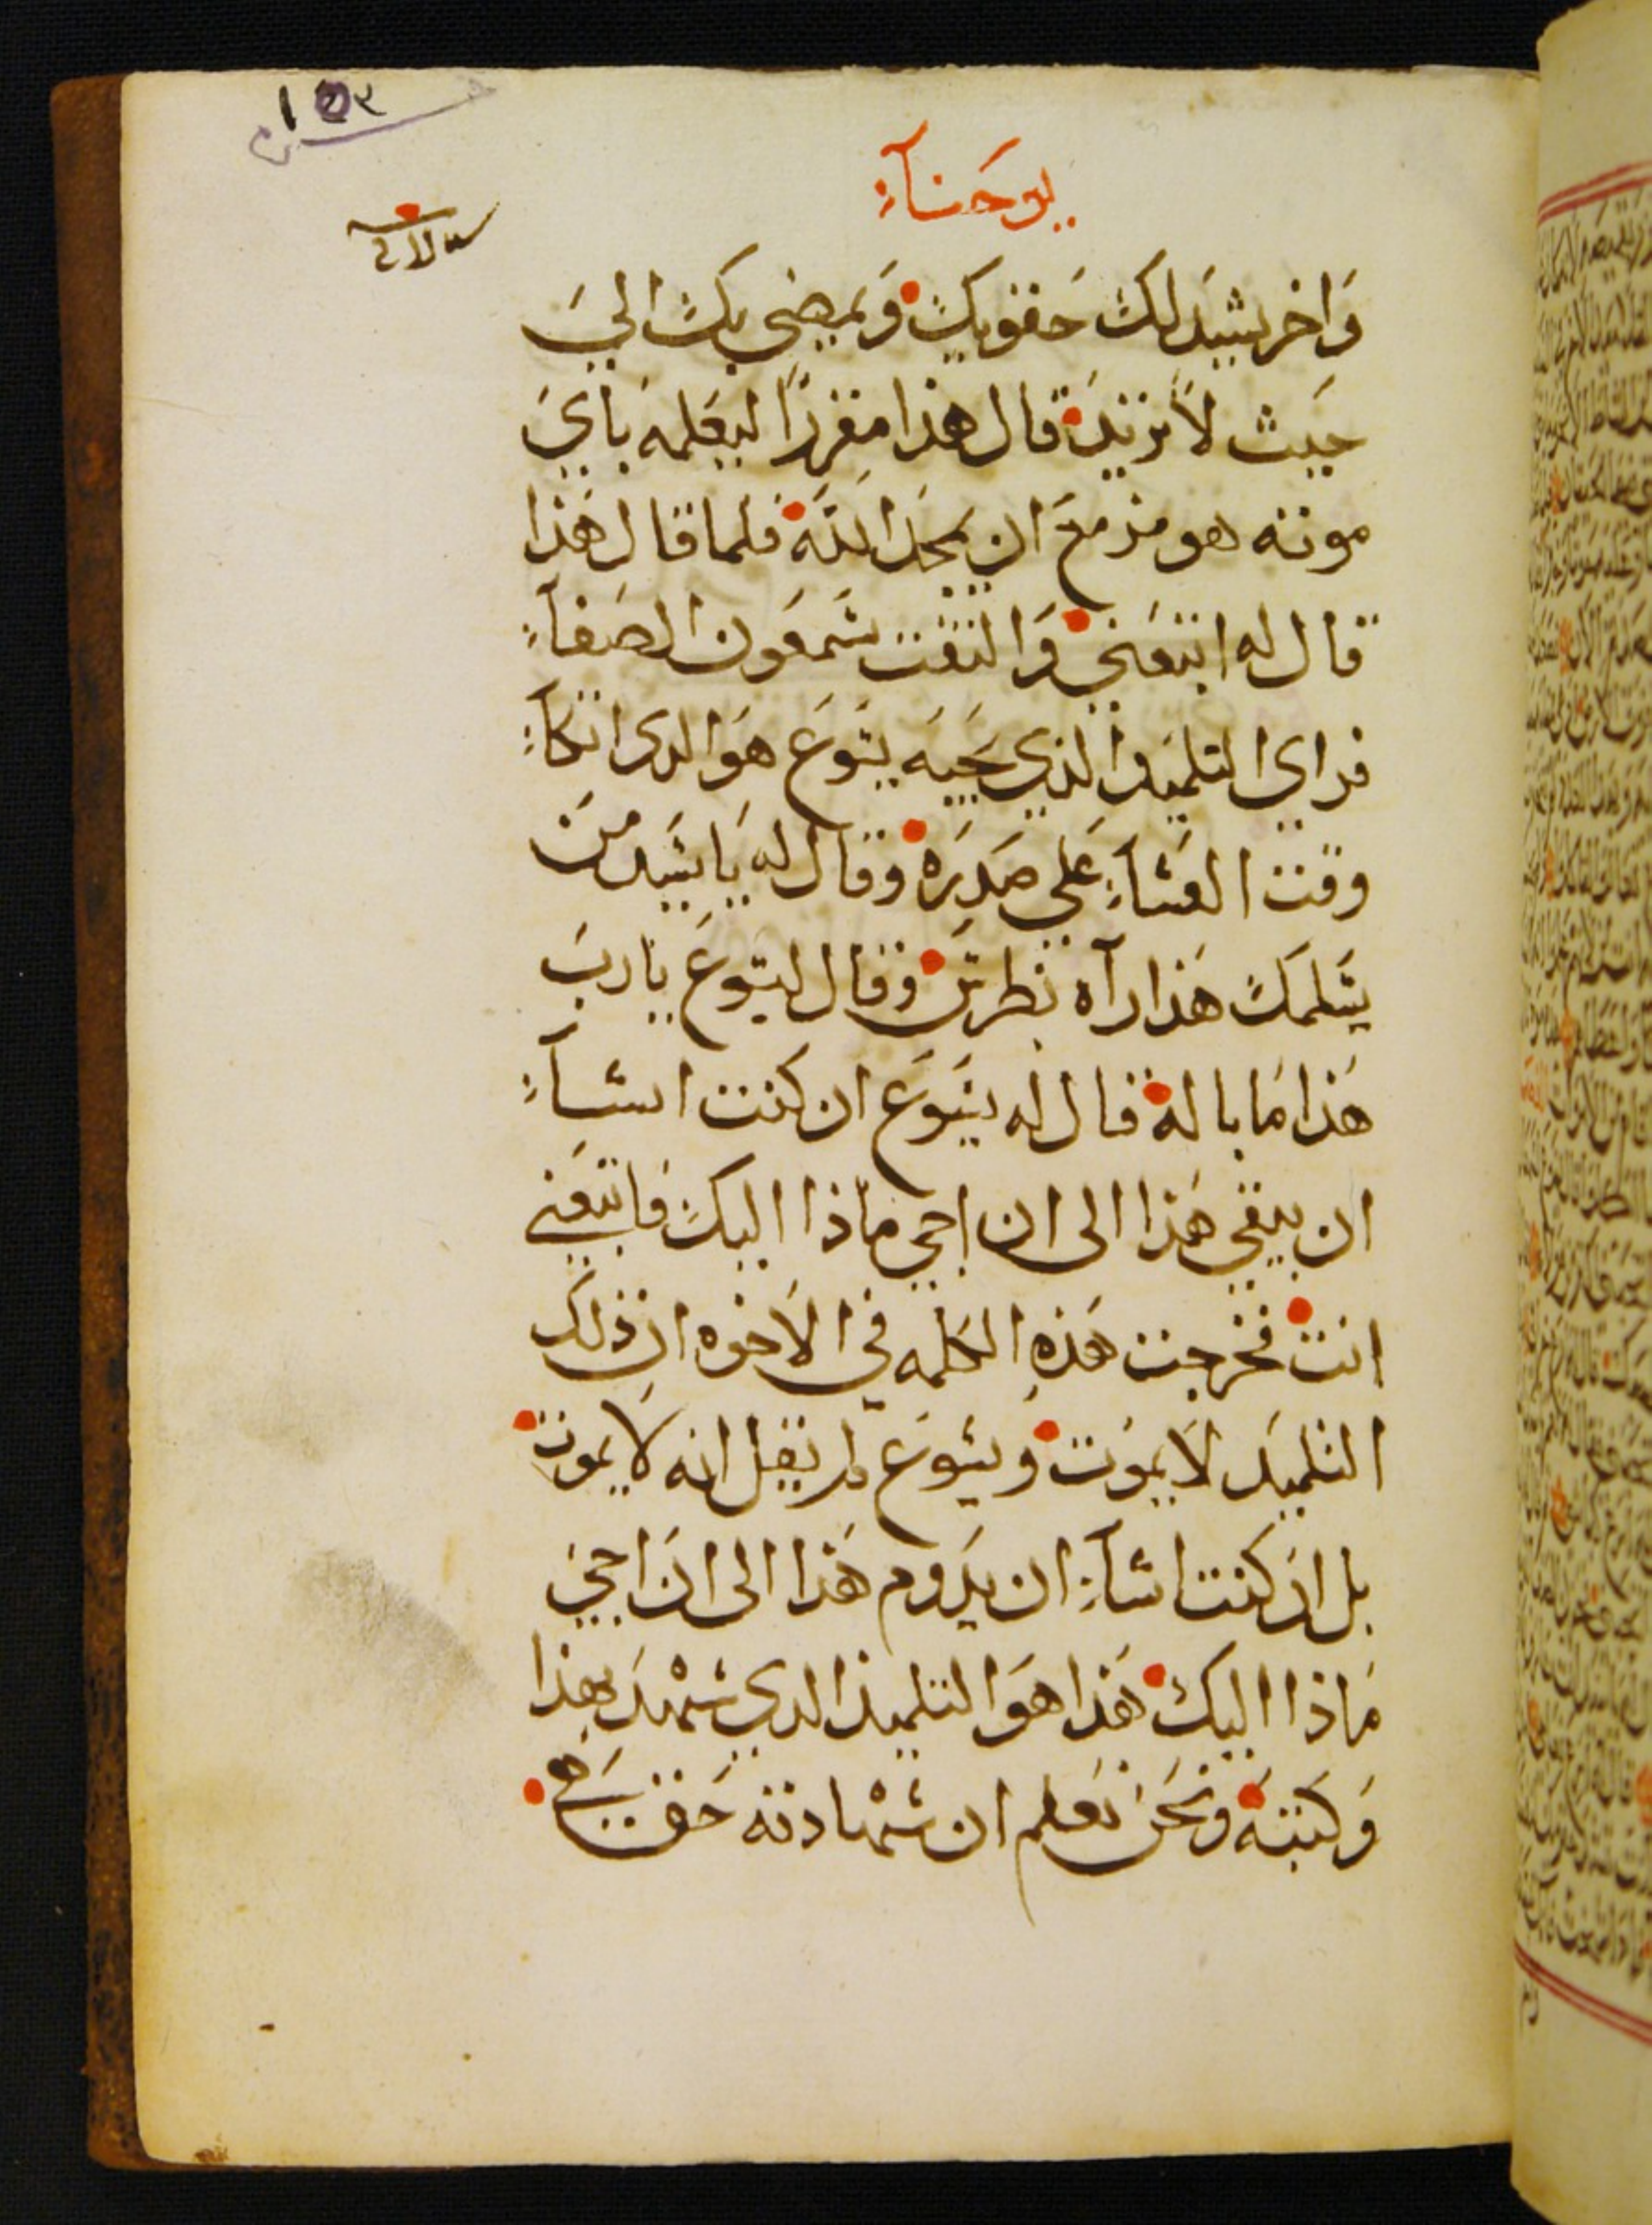 يوحنآء
وَاخر يشد لك حَقويك وَيمضي بك الىَ
حيث لا تريد قال هذا مفررًا ليعلمه باي
موته هو مزمع ان يمجد الله فلما قال هذا
قال له اتبعني وَالتفت شمعون الصَفآء
فراي التلميذ الذي يحبه يسَوعَ هوَ الدى اتكآء
وقت العشآء علي صَدرَه وقال له يا سيد من
يسَلمك هَذا رآه بطرسَ وقال ليسوَعَ يا رب
هَذا مَا باله قال له يسَوعَ ان كنت اشآء
ان يبقي هَذا الى ان اجي ماذا اليك فاتبعني
انت فخرجت هَذهِ الكلمه في الاخوه ان ذلك
التلميد لا يموت ويسَوعَ لم يقل انه لا يموت
بل ان كنت اشآء ان يدَوم هَذا الى ان اجي
مَاذا اليك هَذا هوَ التلميذ الدي شهْدَ بهذا
وَكتبه ونحَن نعَلم ان شهْادته حَق